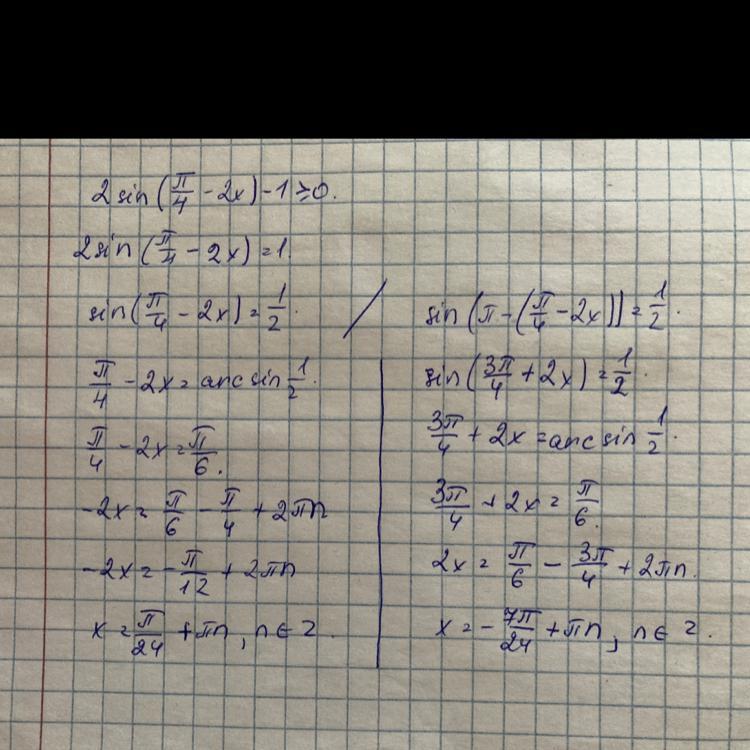 2sin(π/4 - 2x) - 1 ≥ 0.
2sin(π/4 - 2x) = 1.
sin(π/4 - 2x) = 1/2.
π/4 - 2x = arcsin 1/2.
π/4 - 2x = π/6.
-2x = π/6 - π/4 + 2πn
-2x = -π/12 + 2πn
x = π/24 + πn, n ∈ Z.
sin(π - (π/4 - 2x)) = 1/2.
sin(3π/4 + 2x) = 1/2.
3π/4 + 2x = arcsin 1/2.
3π/4 + 2x = π/6.
2x = π/6 - 3π/4 + 2πn.
x = -7π/24 + πn, n ∈ Z.